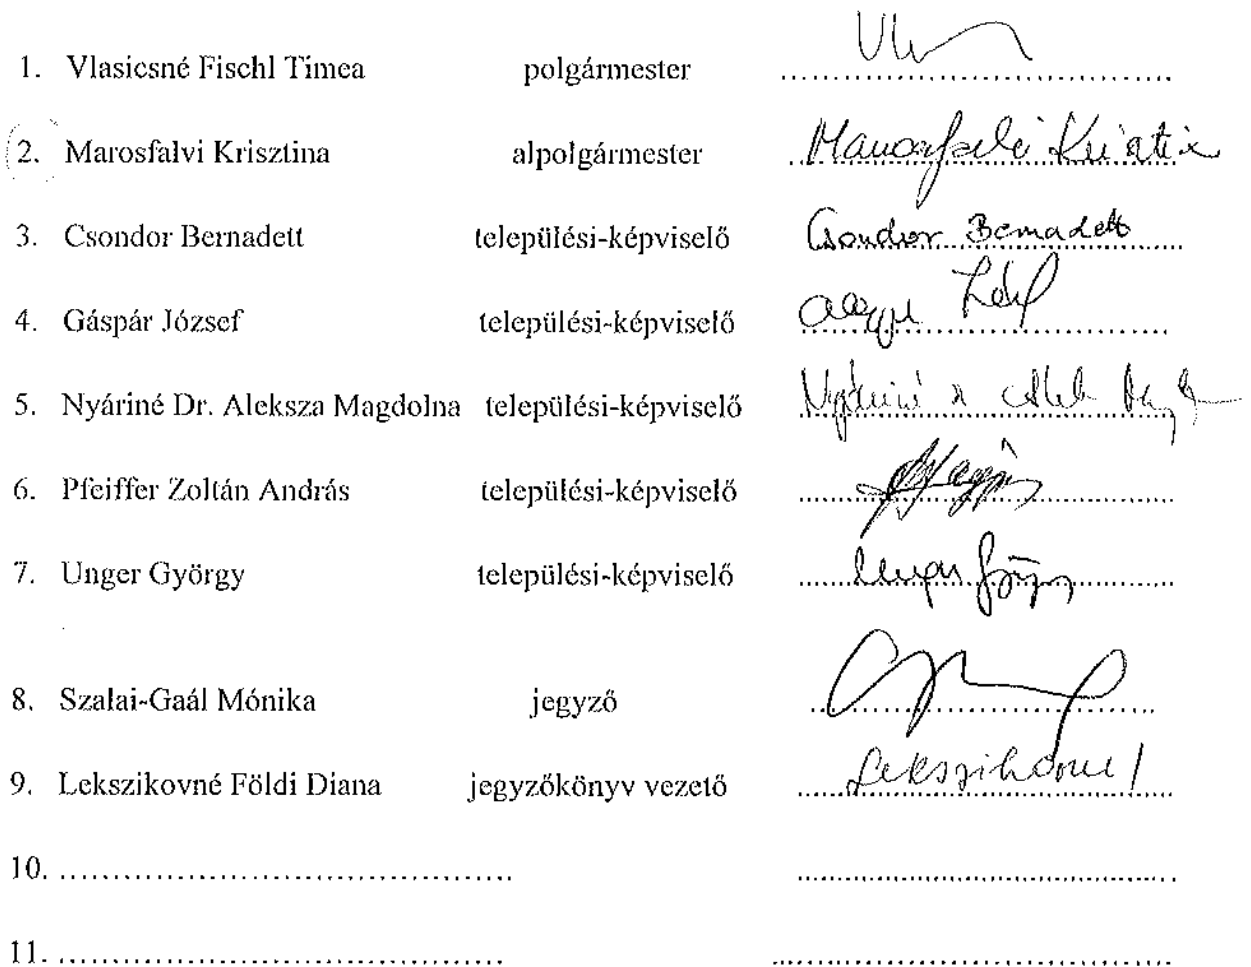 1. Vlasicsné Fischl Tímea polgármester
2. Marosfalvi Krisztina alpolgármester Marosfalvi Krisztina
3. Csondor Bernadett települési-képviselő Csondor Bernadett
4. Gáspár József települési-képviselő
5. Nyáriné Dr. Aleksza Magdolna települési-képviselő Nyáriné
6. Pfeiffer Zoltán András települési-képviselő
7. Unger György települési-képviselő Unger György
8. Szalai-Gaál Mónika jegyző
9. Lekszikovné Földi Diana jegyzőkönyv vezető Lekszikovné
10.
11.